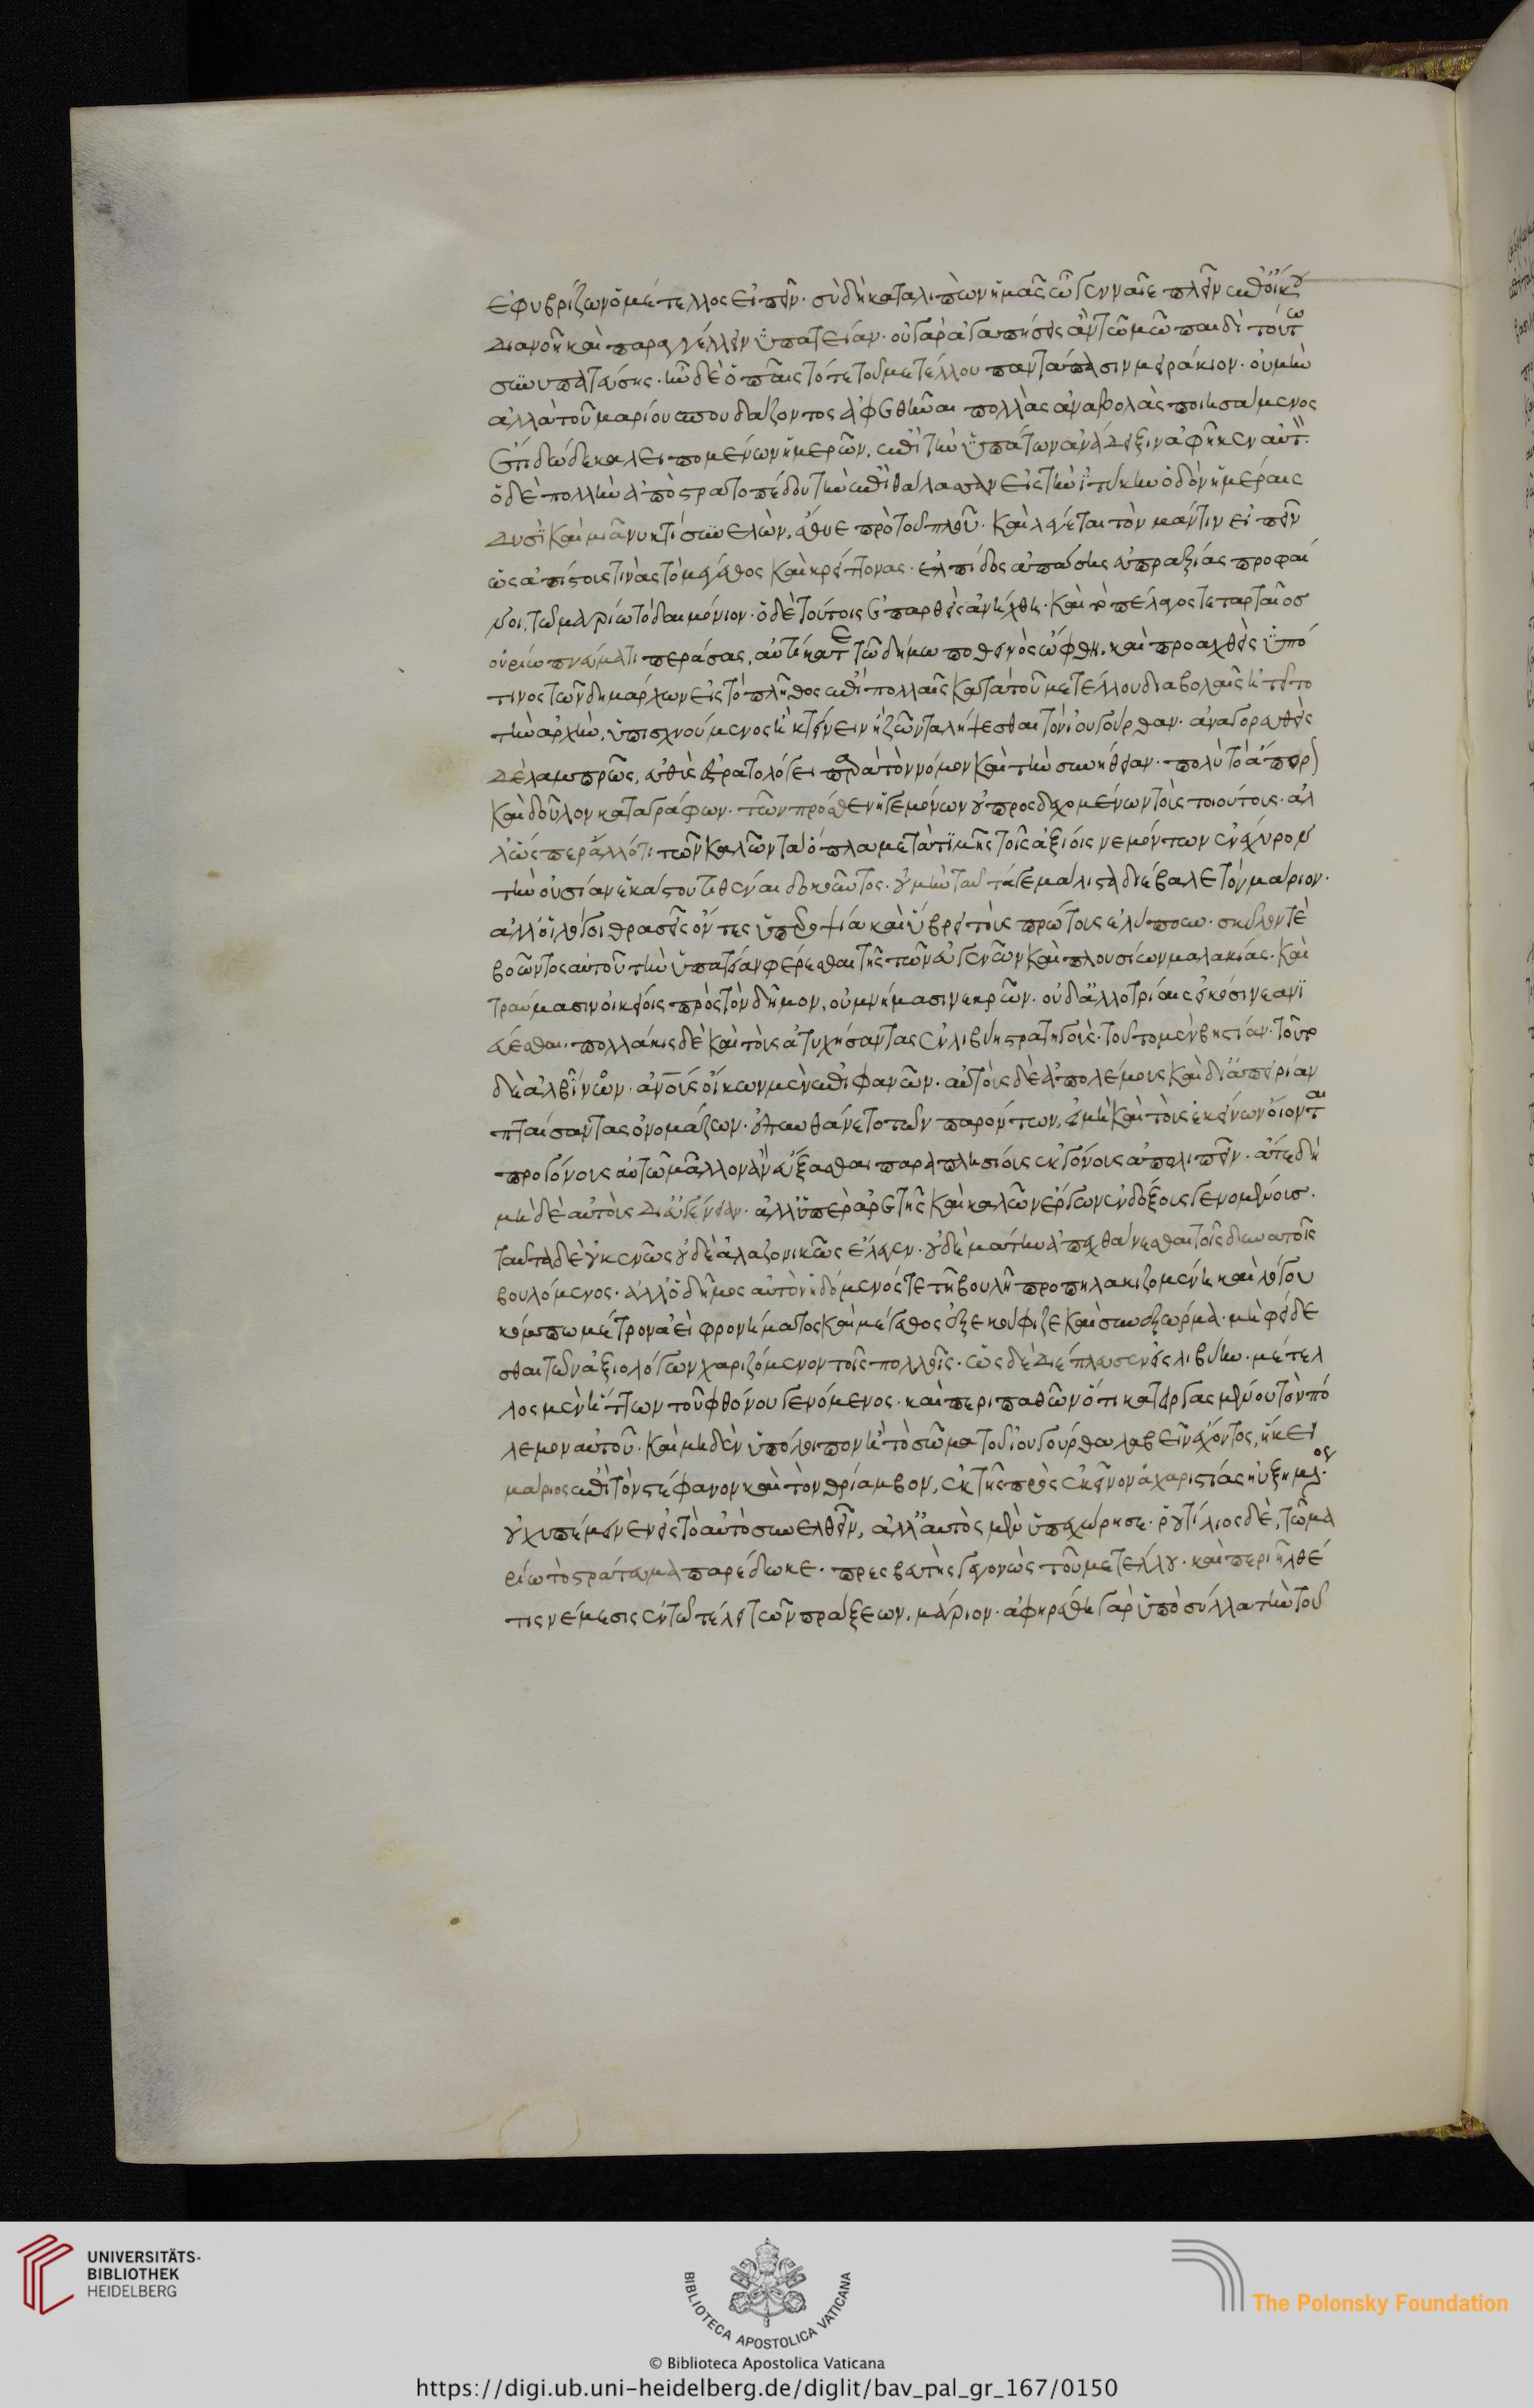 ἐφυβρίζων ὁ μέτελλος εἶπεν· σὺ δὴ καταλιπὼν ἡμᾶς ὦ γενναῖε πλεῖν ἐπ' οἴκου
διανοῆ καὶ παραγγέλλειν ὑπατείαν· οὐ γὰρ ἀγαπήσεις ἂν τῶ μῶ παιδὶ τούτω
συνυπατεύσης. ἦν δὲ ὁ παῖς τότε τοῦ μετέλλου παντάπασιν μειράκιον· οὐ μὴν
ἀλλὰ τοῦ μαρίου σπουδάζοντος ἀφεθῆναι πολλὰς ἀναβολὰς ποιησάμενος
ἔτι δώδεκα λειπομένων ἡμερῶν, ἐπὶ τὴν ὑπάτων ἀνάδειξιν ἀφῆκεν αὐτόν.
ὁ δὲ πολλὴν ἀπὸ στρατοπέδου τὴν ἐπὶ θάλασσαν εἰς τὴν ἰτύκην ὁδὸν ἡμέραις
δυσὶ καὶ μιᾶ νυκτὶ συνελὼν, ἔθυε πρὸ τοῦ πλοῦ· καὶ λέγεται τὸν μάντιν εἰπεῖν
ὡς ἀπίστοις τινὰς τὸ μέγεθος καὶ κρείττονας ἐλπίδος ἁπάσης εὐπραξίας προφαί
νοι, τῶ μαρίω τὸ δαιμόνιον· ὁ δὲ τούτοις ἐπαρθεὶς ἀνήχθη· καὶ τὸ πέλαγος τεταρταῖος
οὐρίω πνεύματι περάσας, αὐτίκα τε τῶ δήμω ποθεινὸς ὤφθη, καὶ προαχθεὶς ὑπό
τινος τῶν δημάρχων εἰς τὸ πλῆθος ἐπὶ πολλαῖς κατὰ τοῦ μετέλλου διαβολαῖς ἠτεῖτο
τὴν ἀρχὴν, ὑπισχνούμενος ἢ κτενεῖν ἢ ζῶντα λήψεσθαι τὸν ἰουγούρθαν· ἀναγορευθεὶς
δὲ λαμπρῶς, εὐθὺς ἐστρατολόγει παρὰ τὸν νόμον καὶ τὴν συνήθειαν· πολὺ τὸ ἄπορον
καὶ δοῦλον καταγράφων· τῶν πρόσθεν ἡγεμόνων οὐ προσδεχομένων τοὺς τοιούτους· ἀλ
λ' ὥσπερ ἄλλό τι τῶν καλῶν τὰ ὅπλα μετὰ τιμῆς τοῖς ἀξίοις νεμόντων ἐνέχυρον
τὴν οὐσίαν ἑκάστου τιθέναι δοκοῦντος· οὐ μὴν ταῦτά γε μάλιστα διέβαλε τὸν μάριον·
ἀλλ' οἱ λόγοι θρασεῖς ὄντες ὑπεροψία καὶ ὕβρει τοὺς πρώτους ἐλύπουν· σκῦλόντε
βοῶντος αὐτοῦ τὴν ὑπατείαν φέρεσθαι τῆς τῶν εὐγενῶν καὶ πλουσίων μαλακίας· καὶ
τραύμασιν οἰκείοις πρὸς τὸν δῆμον, οὐ μνήμασι νεκρῶν· οὐδ' ἀλλοτρίαις εἰκόσι νεανι
εύεσθαι· πολλάκις δὲ καὶ τοὺς ἀτυχήσαντας ἐν λιβύη στρατηγοὺς· τοῦτο μὲν βηστίαν· τοῦτο
δὲ ἀλβῖνον· ἀνθρώπους οἴκων μὲν ἐπιφανῶν· αὐτοὺς δὲ ἀπολέμους καὶ δι' ἀπειρίαν
πταίσαντας ὀνομάζων· ἐπυνθάνετο τῶν παρόντων, εἰ μὴ καὶ τοὺς ἐκείνων οἴονται
προγόνους αὐτῶ μᾶλλον ἂν εὔξασθαι παραπλησίους ἐκγόνους ἀπολιπεῖν· ἅτε δὴ
μηδὲ αὐτοὺς δι' εὐγένειαν· ἀλλ' ὑπὲρ ἀρετῆς καὶ καλῶν ἔργων ἐνδόξους γενομένους.
ταῦτα δὲ οὐ κενῶς οὐδὲ ἀλαζονικῶς ἔλεγεν· οὐδὲ μάτην ἀπεχθάνεσθαι τοῖς δυνατοῖς
βουλόμενος· ἀλλ' ὁ δῆμος αὐτὸν ἡδόμενός τε τῆ βουλῆ προπηλακιζομένη καὶ λόγου
κόμπω μέτρον ἀεὶ φρονήματος καὶ μέγεθος ἐξεκούφιζε καὶ συνεξώρμα· μὴ φείδε
σθαι τῶν ἀξιολόγων χαριζόμενον τοῖς πολλοῖς· ὡς δὲ διέπλευσεν εἰς λιβύην· μέτελ
λος μὲν ἥττων τοῦ φθόνου γενόμενος· καὶ περιπαθῶν ὅτι κατειργασμένου τὸν πό
λεμον αὐτοῦ· καὶ μηδὲν ὑπόλοιπον ἢ τὸ σῶμα τοῦ ἰουγούρθα λαβεῖν ἔχοντος, ἥκει
μάριος ἐπὶ τὸν στέφανον καὶ τὸν θρίαμβον, ἐκ τῆς πρὸς ἐκεῖνον ἀχαριστίας ηὐξημένος·
οὐχ ὑπέμεινεν εἰς τὸ αὐτὸ συνελθεῖν, ἀλλ' αὐτὸς μὲν ὑπεχώρησε· ῥουτίλιος δὲ, τῶ μα
ρίω τὸ στράτευμα παρέδωκε· πρεσβευτὴς γεγονὼς τοῦ μετέλλου· καὶ περιῆλθέ
τις νέμεσις ἐν τῶ τέλει τῶν πράξεων, μάριον· ἀφηρέθη γὰρ ὑπὸ σύλλα τὴν τοῦ
UNIVERSITÄTS-
BIBLIOTHEK
HEIDELBERG
BIBLIOTECA APOSTOLICA VATICANA
The Polonsky Foundation
© Biblioteca Apostolica Vaticana
https://digi.ub.uni-heidelberg.de/diglit/bav_pal_gr_167/0150